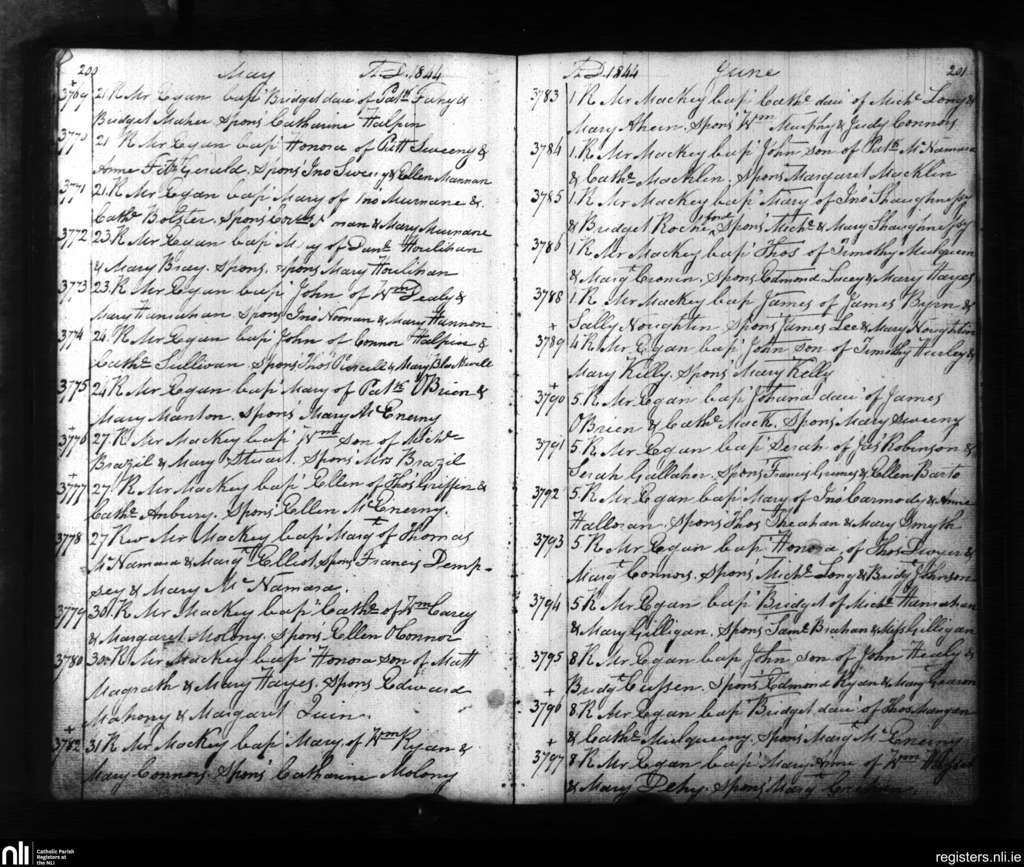 200 May A.D. 1844
3769 21 R Mr Egan bap' Bridget dau' of Patk
Bridget Maher Spons Catharine Halpin
3770 21 R Mr Egan bap' Honora of Patt Sweeny &
Anne FitzGerald. Spons' Jno Sweeny & Ellen Mannan
3771 21. R Mr Egan bap' Mary of Jno Murnane &
Cathe Bolster. Spons & Mary Murnane
3772 23. R Mr Egan bap' Mary of Danl Houlihan
& Mary Bray. Spons. Mary Houlihan
3773 23. R Mr Egan bap' John of Wm Dealy &
Mary Hanrahan Spons Jno Noonan & Mary Hannon
3774 24. R Mr Egan bap' John of Connor Halpin &
Cathe Sullivan. Spons' Thos Purcell & Mary
3775 24 R Mr Egan bap' Mary of Patk O'Brien &
Mary Manton. Spons' Mary McEnerny
3776 27. R Mr Mackey bap' Wm son of Miche
Brazil & Mary Stuart. Spons' Mrs Brazil
3777 27 R Mr Mackey bap' Ellen of Thos Griffin &
Cathe Anbury. Spons' Ellen McEnerny.
3778 27 Rev Mr Mackey bap' Margt of Thomas
McNamara & Margt Elliot, Spons' Francis Demp-
sey & Mary McNamara
3779 30. R Mr Mackey bap' Cathe of Wm Carey
& Margaret Molony. Spons' Ellen O'Connor
3780 30 R Mr Mackey bap' Honora son of Matt
Magrath & Mary Hayes. Spons Edward
Mahony & Margaret Quin.
3782 31 R Mr Mackey bap' Mary of Wm Ryan &
Mary Connors. Spons' Catharine Molony
A.D. 1844 June 201
3783 1 R Mr Mackey bap' Cathe dau' of Miche Long &
Mary Ahern. Spons' Wm Murphy & Judy Connors
3784 1. R Mr Mackey bap' John son of Patk McNamara
& Cathe Macklin. Spons' Margaret Macklin
3785 1. R Mr Mackey bap' Mary of Jno Shaughnessy
& Bridget Roche ford. Spons' Miche & Mary Shaughnessy
3786 1 R Mr Mackey bap' Thos of Timothy Mulqueen
& Margt Cronin. Spons' Edmond Lucey & Mary Hayes
3788 1. R Mr Mackey bap' James of James Byrn &
Sally Noughtin. Spons' James Lee & Mary Noughtin
3789 4 R Mr Egan bap' John son of Timothy Hurley &
Mary Kelly. Spons' Mary Kelly
3790 5. R Mr Egan bap' Johana dau' of James
O'Brien & Cathe Mack. Spons' Mary Sweeny
3791 5 R Mr Egan bap' Serah of Jas Robinson &
Serah Gallahor. Spons' Francis Grimes & Ellen Barto
3792 5. R Mr Egan bap' Mary of Jno Carmody & Anne
Halloran. Spons' Thos Sheahan & Mary Smyth
3793 5 R Mr Egan bap' Honora of Thos Dwyer &
Margt Connors. Spons' Miche Long & Bridgt Johnson
3794 5 R Mr Egan bap' Bridget of Miche Hanrahan
& Mary Gilligan. Spons' Saml Brahan & Miss Gilligan
3795 8 R Mr Egan bap' John son of John Healy &
Bridgt Cussen. Spons' Edmond Ryan & Mary
3796 8 R Mr Egan bap' Bridget dau' of Thos Mangan
& Cathe Mulqueeny. Spons' Margt McEnerny
3797 8 R Mr Egan bap' Mary Anne of Wm
& Mary Dehy. Spons' Margt
nli Catholic Parish
Registers at
the NLI
registers.nli.ie